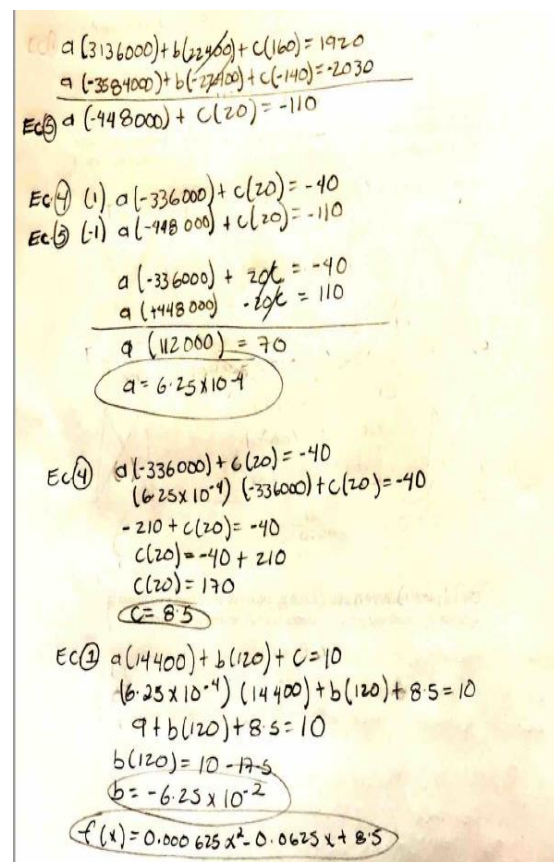 a(3136000)+b(22400)+c(160)=1920
a(-3584000)+b(-22400)+c(-140)=-2030
Ec⑤ a(-448000)+c(20)=-110
Ec.④ (1) a(-336000)+c(20)=-40
Ec.⑤ (-1) a(-448000)+c(20)=-110
a(-336000) + 20c = -40
a(+448000) -20c = 110
a (112000) = 70
a= 6.25x10-4
Ec④ a(-336000)+c(20)=-40
(6.25x10-4) (-336000)+c(20)=-40
-210+c(20)=-40
c(20)=-40+210
c(20)=170
c=8.5
Ec① a(14400)+b(120)+c=10
(6.25x10-4) (14400)+b(120)+8.5=10
9+b(120)+8.5=10
b(120)=10-17.5
b=-6.25x10-2
f(x)=0.000625x²-0.0625x+8.5